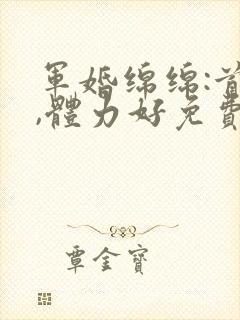 軍婚綿綿:首
,體力好免費
覃金寶